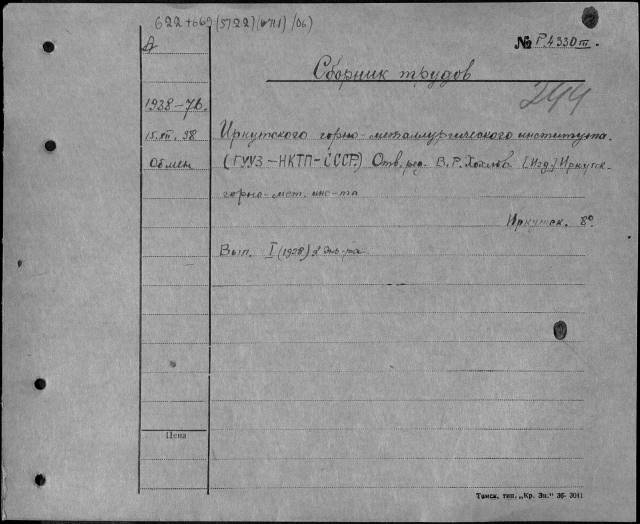 622+669 (5722) (∅711) /06)
А
№ Р.4330 III.
Сборник трудов
244
1938-7б.
15.XII.38 Иркутского горно-металлургического института.
Обмен (ГУУЗ-НКТП-СССР) Отв. ред. В.Р. [Изд.] Иркутск.
горно-мет. инс-та
Иркутск. 8°
Вып. I (1938) 2 экз-ра
Цена
Томск. тип. „Кр. Зн." 36-3011